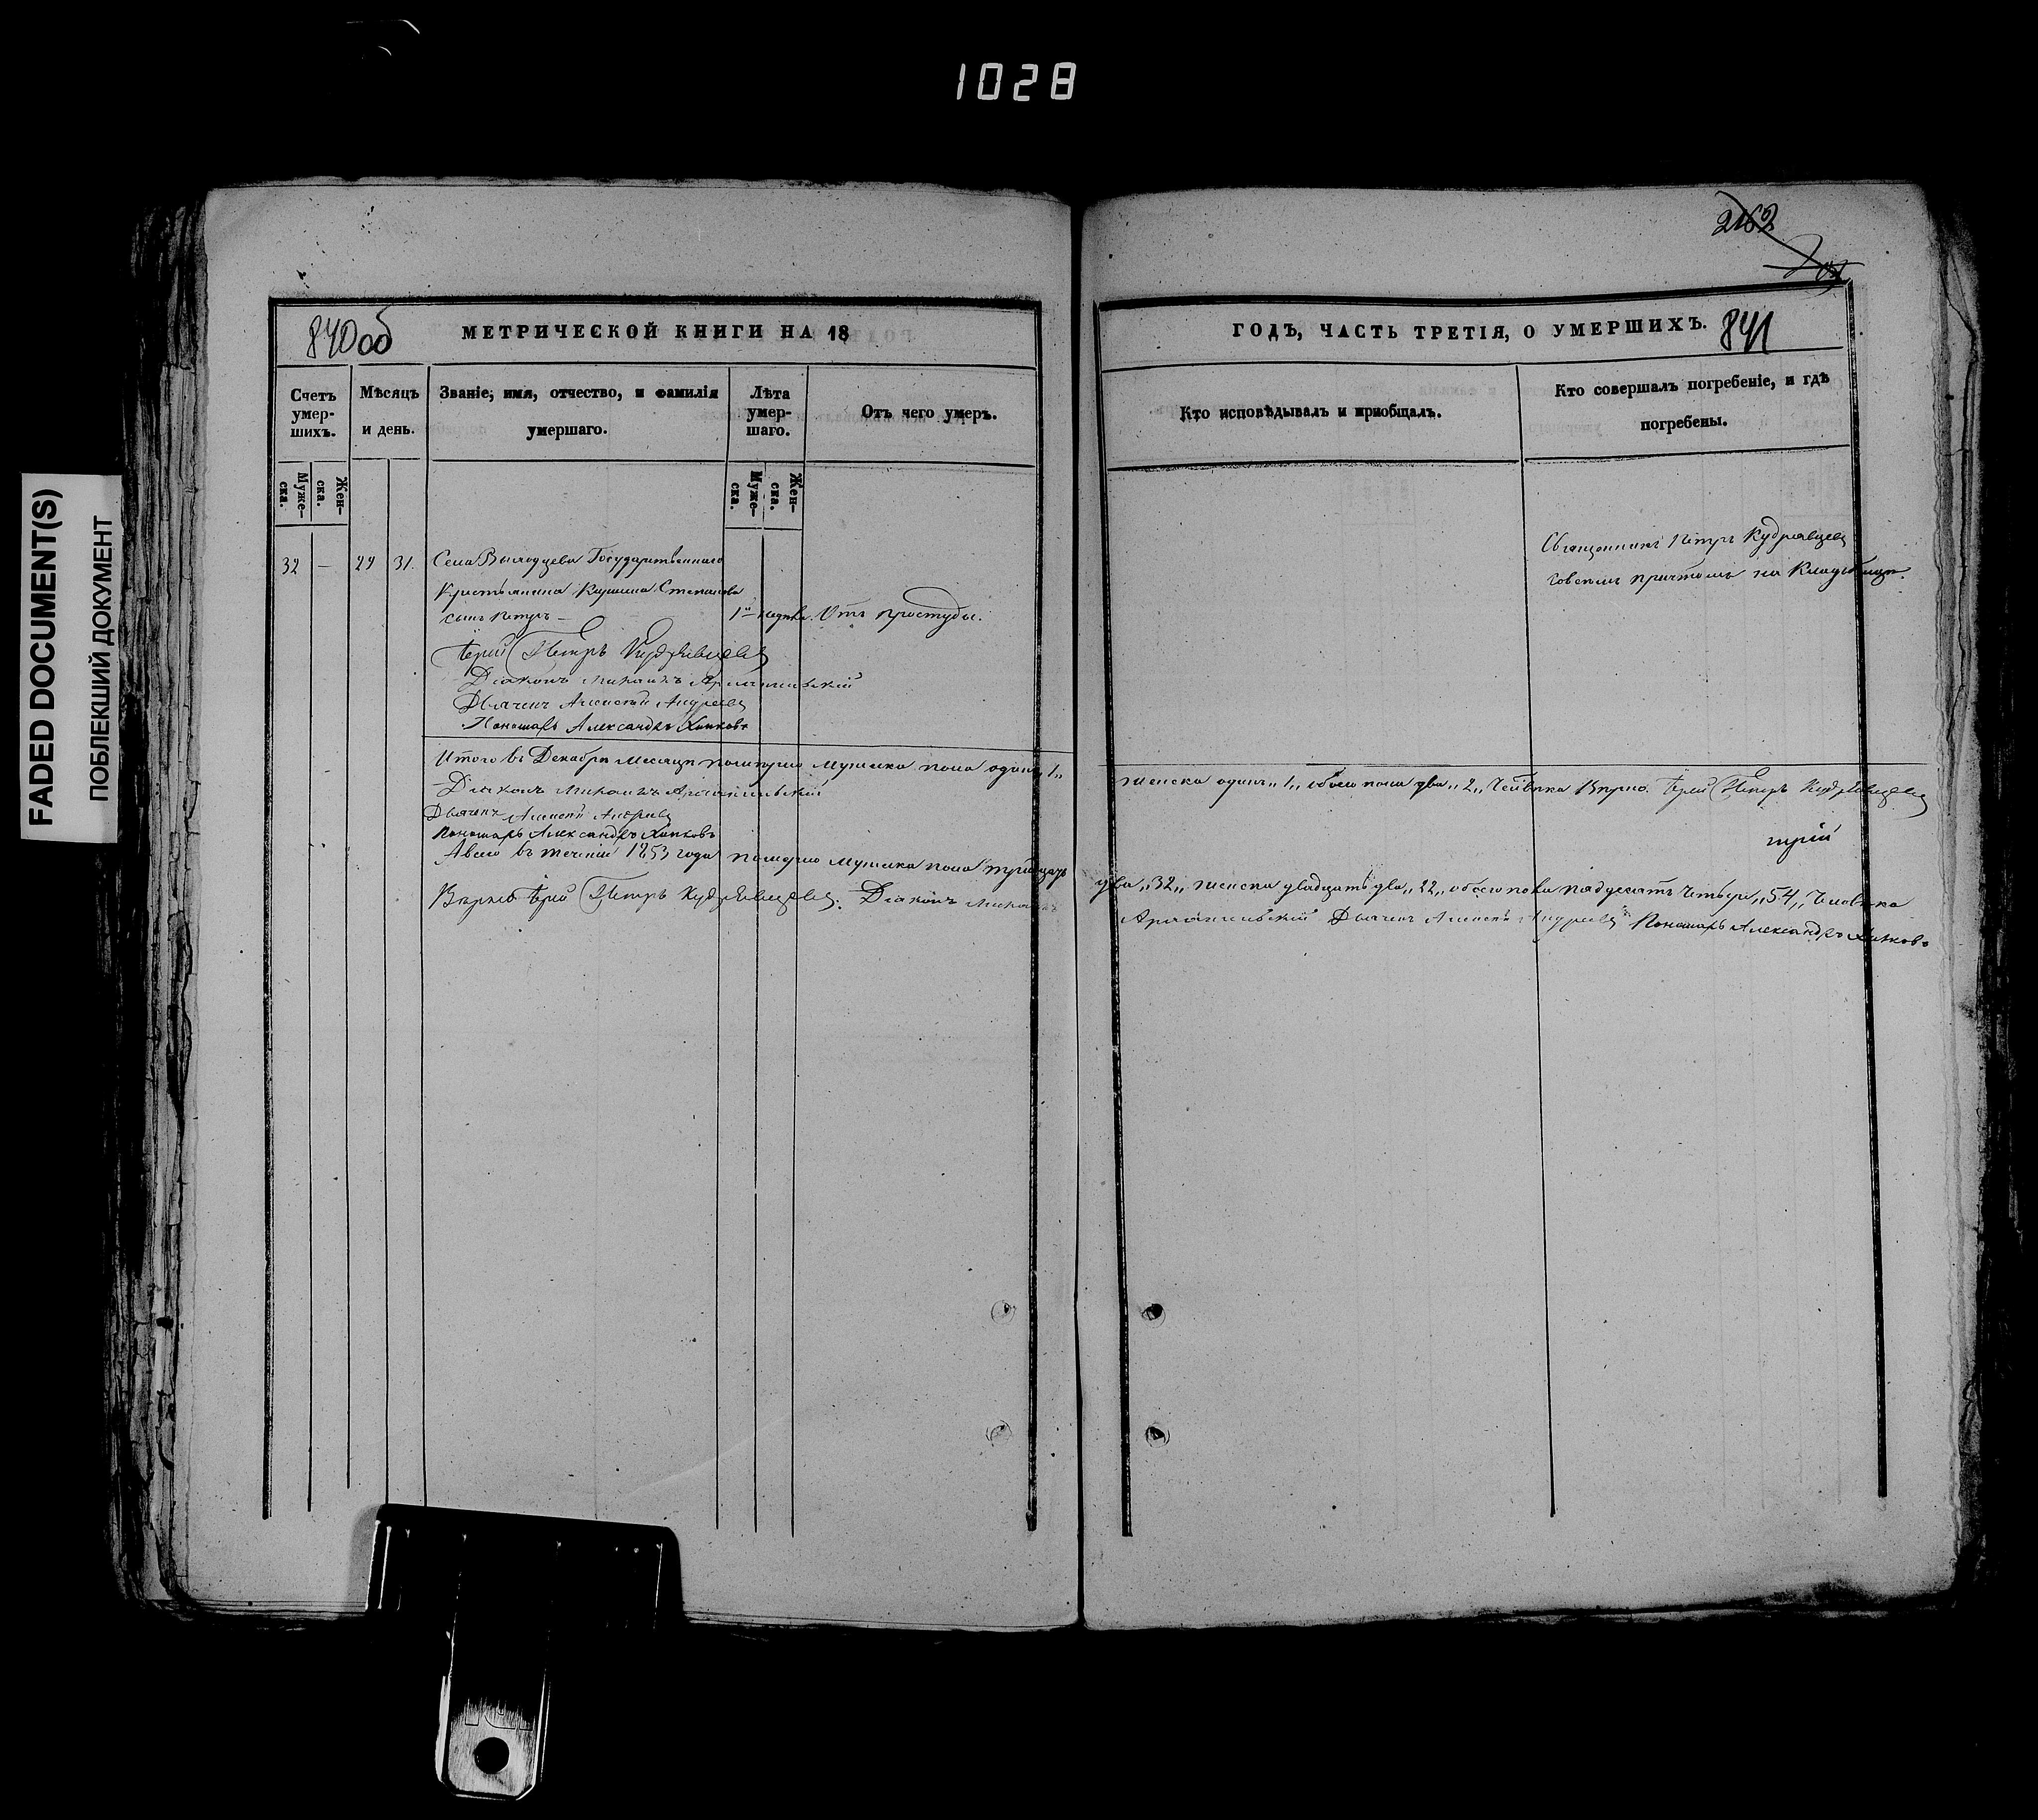 1028
FADED DOCUMENT(S)
ПОБЛЕКШИЙ ДОКУМЕНТ
840об
МЕТРИЧЕСКОЙ КНИГИ НА 18
Счетъ умер-шихъ.
Мѣсяцъ и день.
Званіе, имя, отчество, и фамилія умершаго.
Лѣта умер-шаго.
Отъ чего умеръ.
Муже-ска.
Жен-ска.
Муже-ска.
Жен-ска.
32 — 29 31. Села Государственнаго
Крестьянина Степанова
сынъ Петръ — недѣль. Отъ простуды.
Іерей Петръ Кудрявцевъ
Діаконъ Михаилъ Архангельскій
Дьячекъ Алексѣй Андреевъ
Пономарь Александръ Хитковъ
Итого въ Декабрѣ месяцѣ померло мужеска пола одинъ „1„
Діаконъ Михаилъ Архангельскій
Дьячекъ Алексѣй Андреевъ
Пономарь Александръ Хитковъ
А всего въ теченіи 1853 года померло мужеска пола тридцать
Вѣрно Іерей Петръ Кудрявцевъ. Діаконъ Михаилъ
2162
ГОДЪ, ЧАСТЬ ТРЕТІЯ, О УМЕРШИХЪ.
841
Кто исповѣдывалъ и пріобщалъ.
Кто совершалъ погребеніе, и гдѣ погребены.
Священникъ Петръ Кудрявцевъ
совсемъ причтомъ на Кладбище.
женска одинъ „1„ обоего пола два „2„ человѣка Вѣрно. Іерей Петръ Кудрявцевъ
два „32„ женска двадцать два „22„ обоего пола пядьдесятъ четыре „54„ человѣка
Архангельскій Дьячекъ Алексѣй Андреевъ Пономарь Александръ Хитковъ